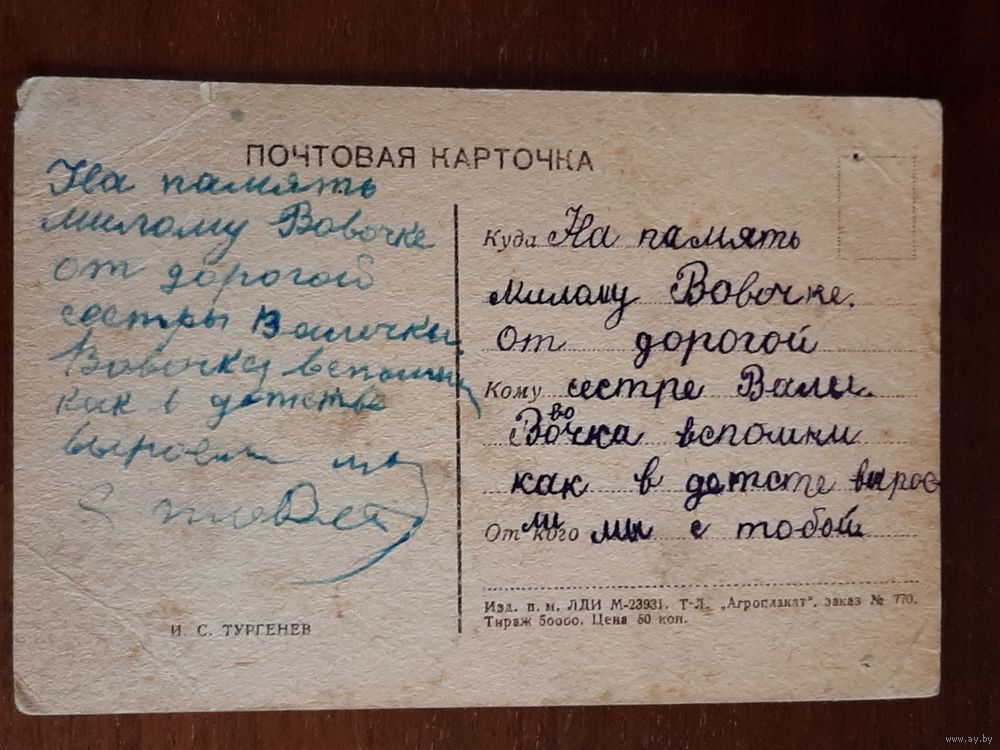 ПОЧТОВАЯ КАРТОЧКА
На память
милому Вовочке
от дорогой
сестры Валечки.
Вовочка вспомни
как в детстве
выросли мы
с тобой
И. С. ТУРГЕНЕВ
Куда На память
милому Вовочке.
от дорогой
Кому сестре Вали.
Вовочка вспомни
как в детсте вырос
ли
От кого мы с тобой
Изд. п. м. ЛДИ М-23931. Т-Л. „Агроплакат", заказ № 770.
Тираж 50000. Цена 50 коп.
www.ay.by